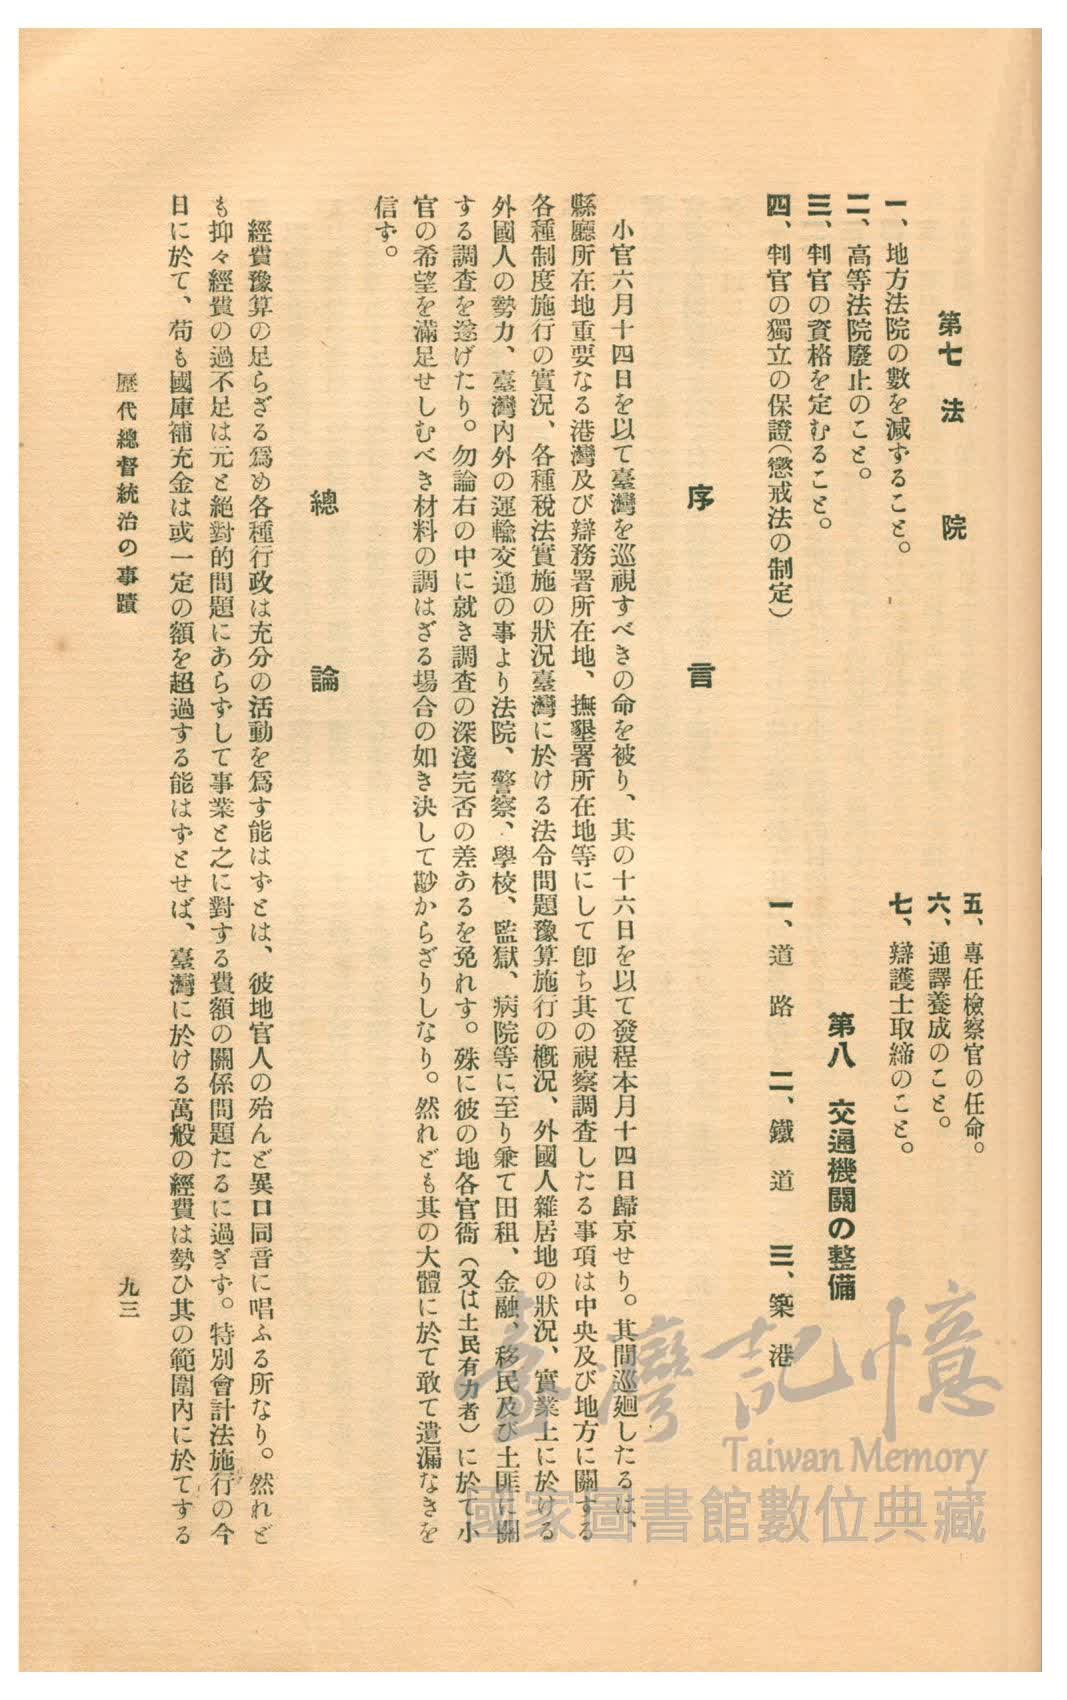 第七　法　院
一、地方法院の數を減ずること。
二、高等法院廢止のこと。
三、判官の資格を定むること。
四、判官の獨立の保證(懲戒法の制定)
五、專任檢察官の任命。
六、通譯養成のこと。
七、辯護士取締のこと。
第八　交通機關の整備
一、道　路　二、鐵　道　三、築　港
序　言
小官六月十四日を以て臺灣を巡視すべきの命を被り、其の十六日を以て發程本月十四日歸京せり。其間巡廻したるは、
縣廳所在地重要なる港灣及び辯務署所在地、撫墾署所在地等にして卽ち其の視察調査したる事項は中央及び地方に關する
各種制度施行の實況、各種稅法實施の狀況臺灣に於ける法令問題豫算施行の槪況、外國人雜居地の狀況、實業上に於ける
外國人の勢力、臺灣內外の運輸交通の事より法院、警察、學校、監獄、病院等に至り兼て田租、金融、移民及び土匪に關
する調査を遂げたり。勿論右の中に就き調査の深淺完否の差あるを免れす。殊に彼の地各官衙（又は土民有力者）に於て小
官の希望を滿足せしむべき材料の調はざる場合の如き決して尠からざりしなり。然れども其の大體に於て敢て遺漏なきを
信ず。
總　論
經費豫算の足らざる爲め各種行政は充分の活動を爲す能はずとは、彼地官人の殆んど異口同音に唱ふる所なり。然れど
も抑々經費の過不足は元と絕對的問題にあらずして事業と之に對する費額の關係問題たるに過ぎず。特別會計法施行の今
日に於て、苟も國庫補充金は或一定の額を超過する能はずとせば、臺灣に於ける萬般の經費は勢ひ其の範圍內に於てする
歷代總督統治の事蹟
九三
臺灣記憶
Taiwan Memory
國家圖書館數位典藏